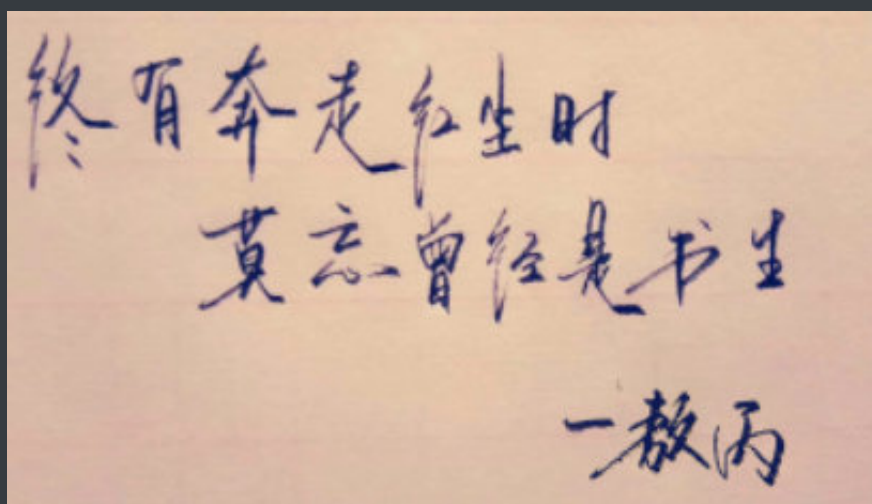 终有奔走红尘时
莫忘曾经是书生
一敖丙